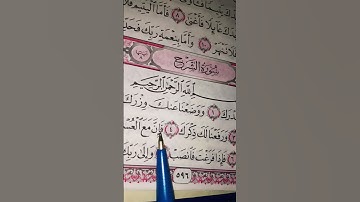 عَآئِلًا فَأَغْنَىٰ ٨ فَأَمَّا ٱلْيَتِيمَ فَلَا
فَلَا تَنْهَرْ ١٠ وَأَمَّا بِنِعْمَةِ رَبِّكَ فَحَدِّ
سُورَةُ الشَّرْحِ
بِسْمِ ٱللَّهِ ٱلرَّحْمَٰنِ ٱلرَّحِيمِ
دْرَكَ ١ وَوَضَعْنَا عَنكَ وِزْرَكَ
٣ وَرَفَعْنَا لَكَ ذِكْرَكَ ٤ فَإِنَّ مَعَ ٱلْعُسْ
٦ فَإِذَا فَرَغْتَ فَٱنصَبْ ٧ وَإِلَىٰ رَبِّكَ
٥٩٦